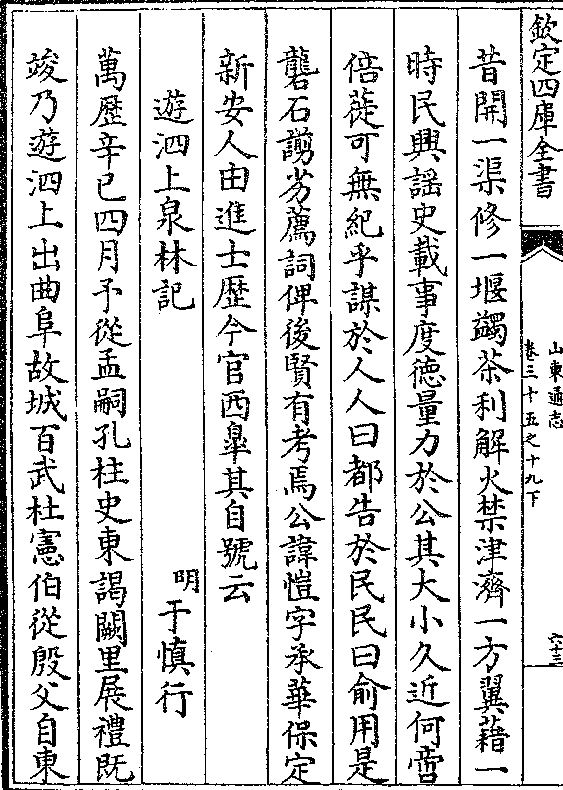 欽定四庫全書
山東通志
卷三十五之十九下
六十三
昔開一渠修一堰蠲茶利解火禁津濟一方翼藉一
時民興謡史載事度徳量力於公其大小久近何啻
倍蓰可無紀乎謀於人人曰都告於民民曰俞用是
礱石謭劣薦詞俾後賢有考焉公諱愷字承華保定
新安人由進士歴今官西臯其自號云
遊泗上泉林記
明于慎行
萬歴辛巳四月予從孟嗣孔柱史東謁闕里展禮既
竣乃遊泗上出曲阜故城百武杜憲伯從殷父自東